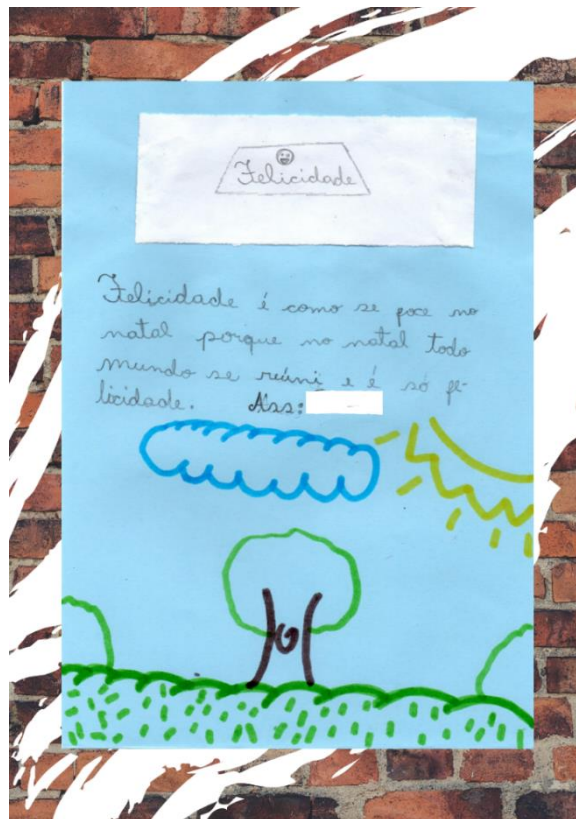 Felicidade
Felicidade é como se foce no
natal porque no natal todo
mundo se reúni e é só fe-
licidade. Ass: